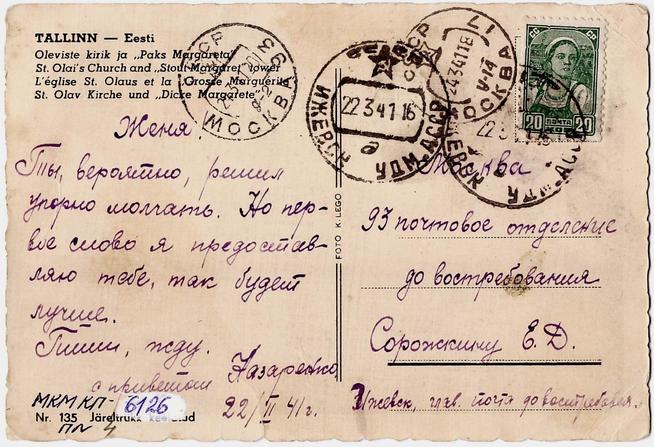 TALLINN — Eesti
Oleviste kirik ja „Paks Margareta"
St. Olai's Church and „Stout Margaret" tower
L'église St. Olaus et la „Grosse Marguerite"
St. Olav Kirche und „Dicke Margarete"
СССР
МОСКВА 93
ИЖЕВСК УДМ.АССР
22 3 41 16
а
24 3 41 18
МОСКВА 17
СС СР
20 ПОЧТА 20
Женя.
Ты, вероятно, решил
упорно молчать. Но пер-
вое слово я предостав-
ляю тебе, так будет
лучше.
Пиши, жду.
с приветом Назаренко
22/III 41г.
FOTO K. LEGO
Москва
93 почтовое отделение
до востребования
Сорожкину Е.Д.
Ижевск, глав. почта до востребования.
МКМ КП- 6126
ПИ 4
Nr. 135 Järeltrükk